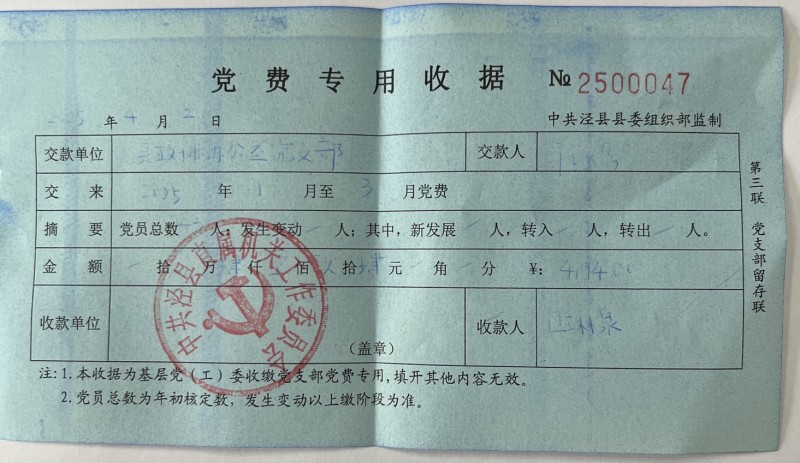 党费专用收据 № 2500047
年 4 月 2 日 中共泾县县委组织部监制
交款单位 县政协办公室党支部 交款人
交来 2025 年 1 月至 3 月党费
摘要 党员总数 人；发生变动 人；其中，新发展 人，转入 人，转出 人。
金额 拾 万 仟 佰 拾 元 角 分 ¥：4194.00
收款单位 （盖章） 收款人
中共泾县直属机关工作委员会
注：1.本收据为基层党（工）委收缴党支部党费专用，填开其他内容无效。
2.党员总数为年初核定数，发生变动以上缴阶段为准。
第三联 党支部留存联